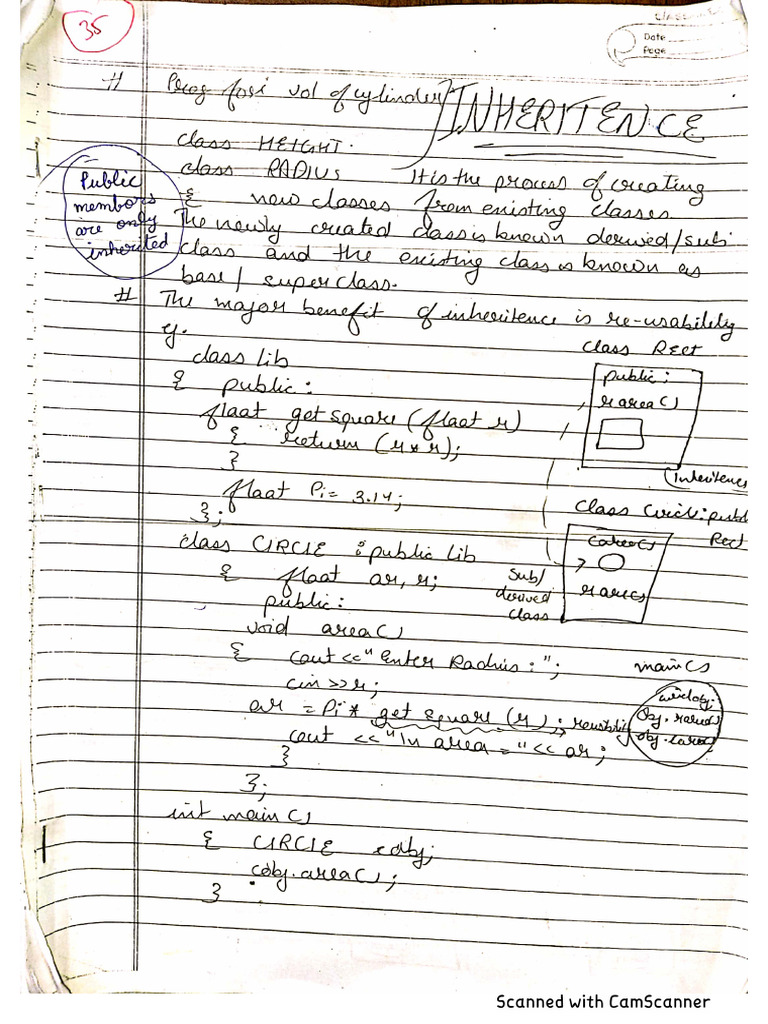 35
Date
Page
# Prog for vol of cylinder
INHERITENCE
class HEIGHT.
class RADIUS
It is the process of creating
{ new classes from existing classes.
The newly created class is known derived/sub
class and the existing class is known as
base/superclass.
Public
members
are only
inherited
# The major benefit of inheritence is re-usability
eg.
class lib
{ public:
float getsquare (float r)
{ return (r*r);
}
float Pi = 3.14;
};
class CIRCLE : public lib
{ float ar, r;
public:
void area()
{ cout <<"Enter Radius:";
cin>>r;
ar = Pi* get square (r);
cout <<"\n area = "<< ar;
}
};
int main()
{ CIRCLE cobj;
cobj.area();
}
class Rect
public:
rarea()
Inheritence
class Circle: public
Rect
carea()
rarea()
Sub/
derived
class
main()
obj. rarea()
obj. carea()
Scanned with CamScanner